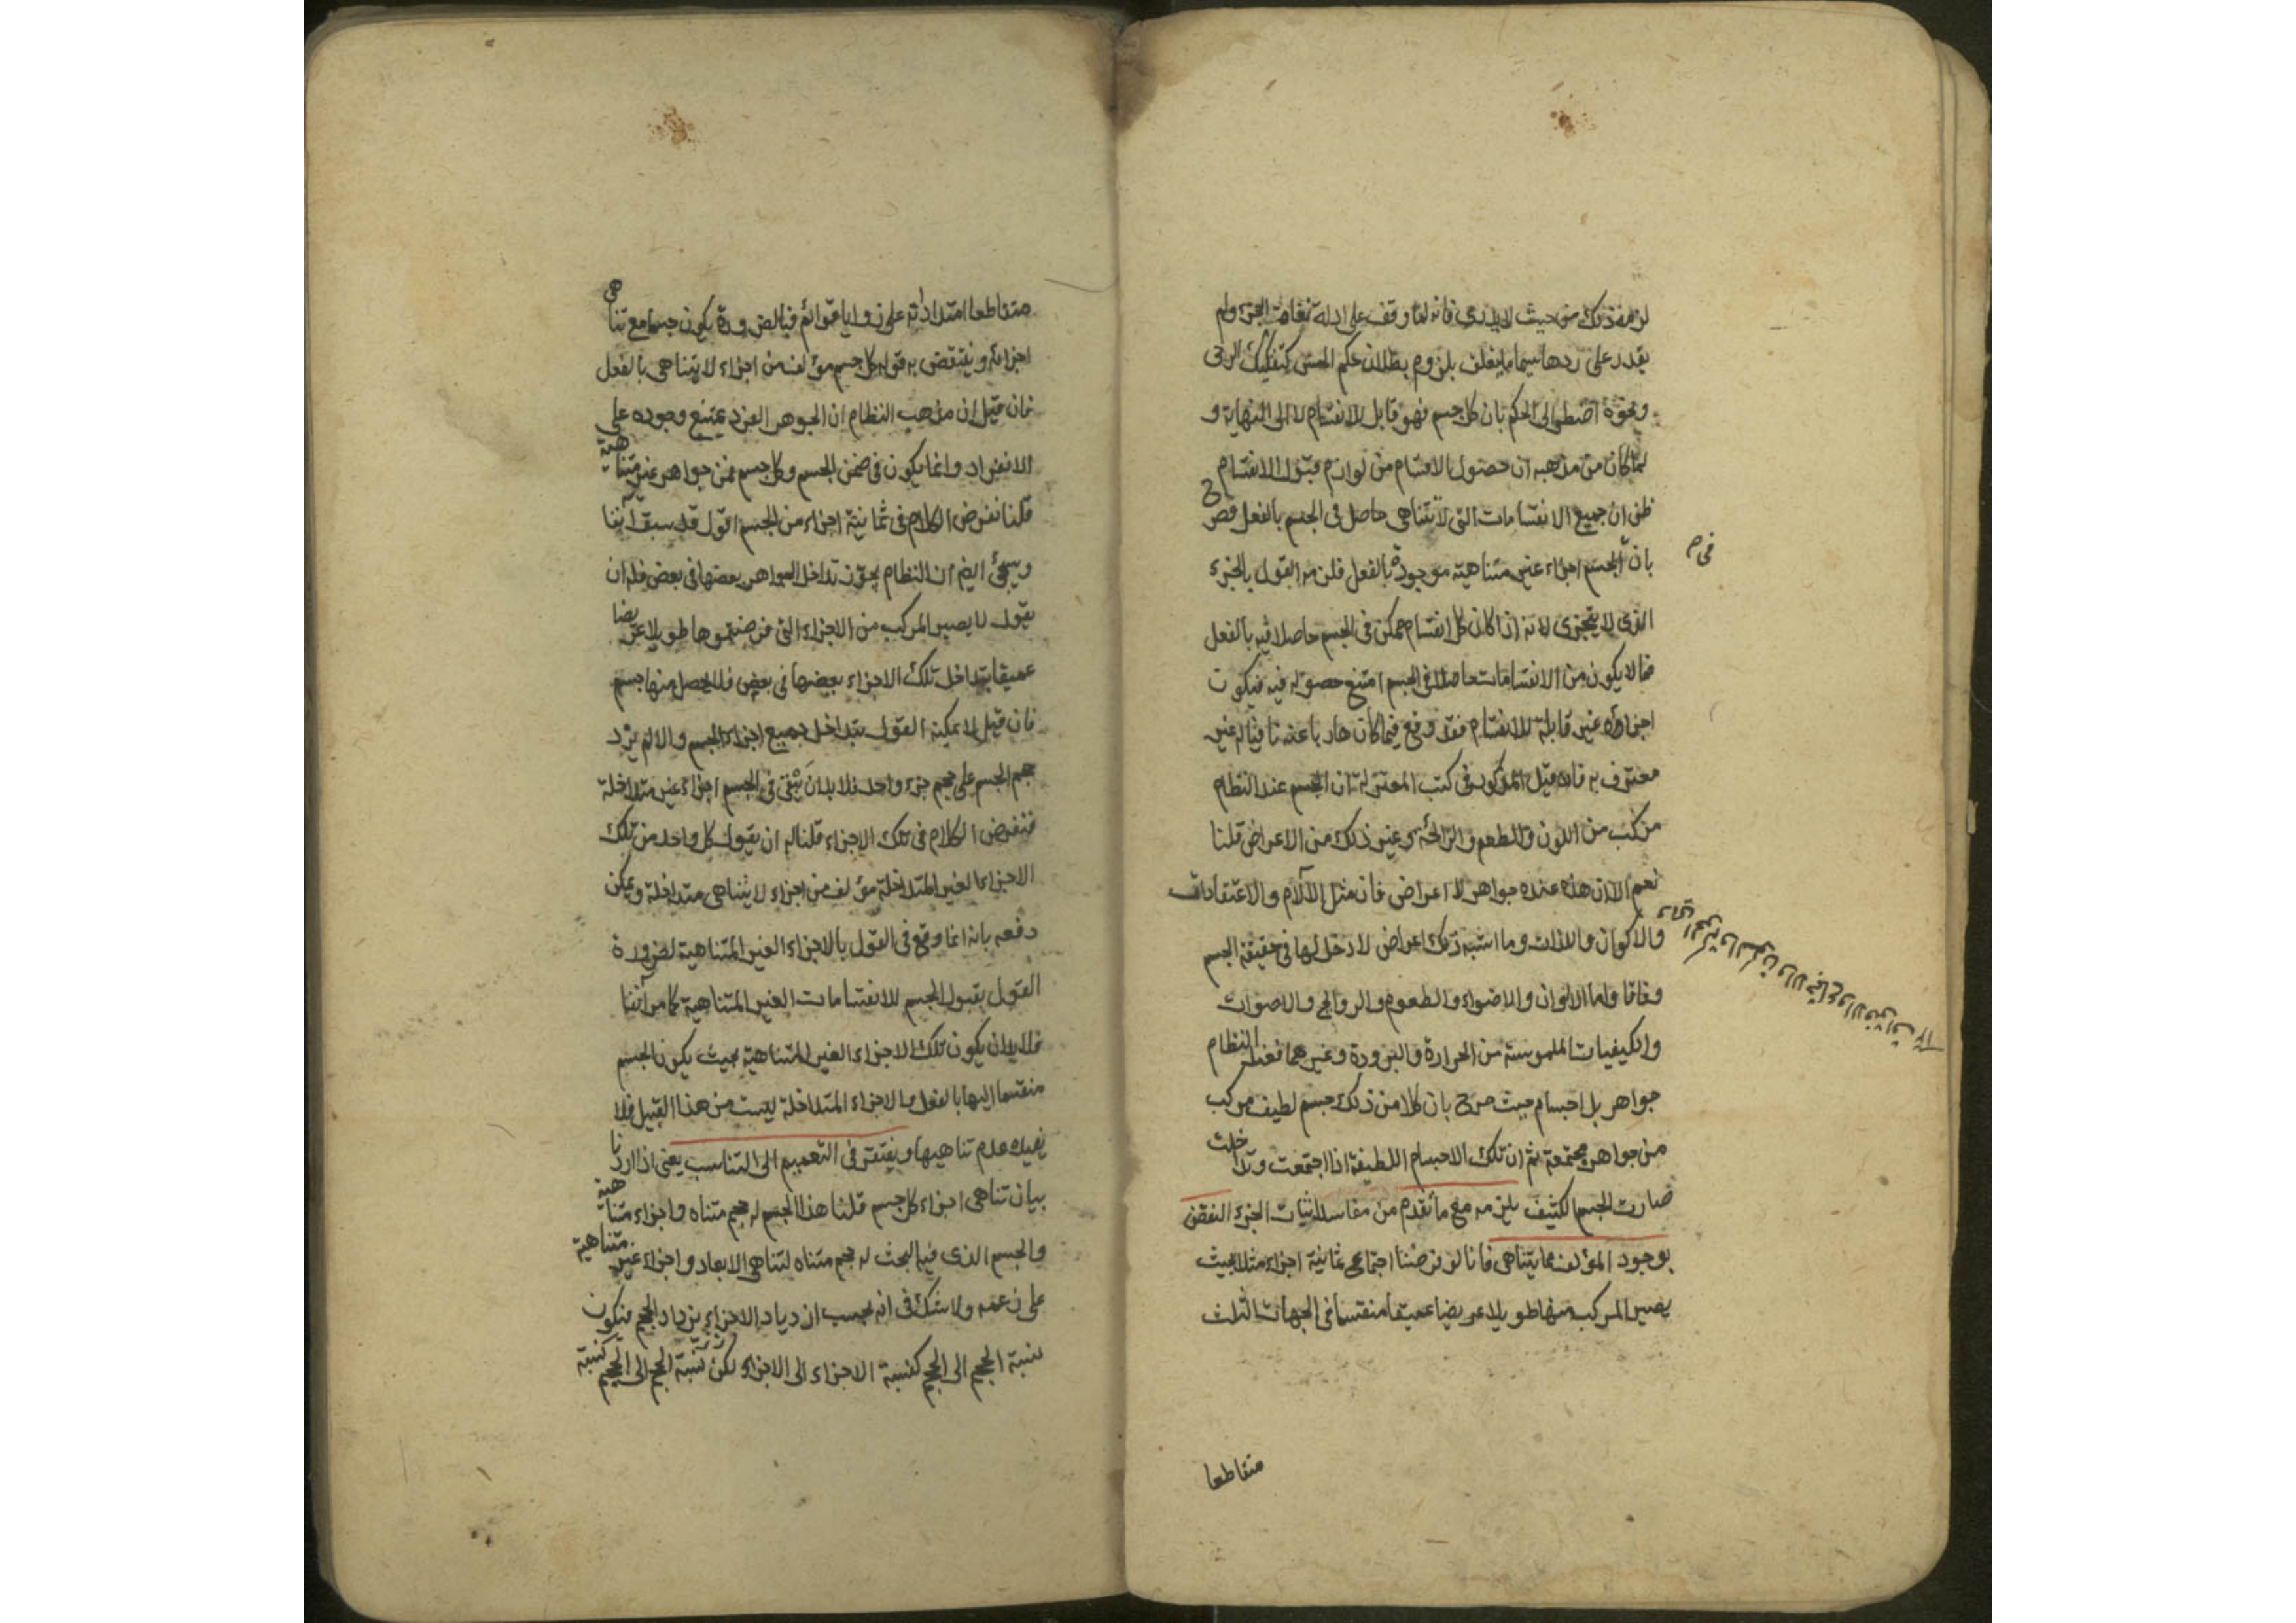 لزمه ذلك من حيث لا يدرى فانه لما وقف على ادلة نفاة الجزء ولم
يقدر على ردها سيما ما يتعلق بلزوم بطلان حكم الحس كتفكك الرحى
ونحوه اضطر الى الحكم بان كل جسم فهو قابل للانقسام لا الى النهاية و
لما كان من مذهبه ان حصول الاقسام من لوازم قبول الانقسام
ظن ان جميع الانقسامات التى لا تتناهى حاصل فى الجسم بالفعل فصرح
بان فى الجسم اجزاء غير متناهية موجودة بالفعل فلزمه القول بالجزء
الذى لا يتجزى لانه اذا كان كل انقسام ممكن فى الجسم حاصلا فيه بالفعل
فما لا يكون من الانقسامات حاصلا فى الجسم امتنع حصوله فيه فيكون
اجزاؤه غير قابلة للانقسام فقد وقع فيما كان هاربا عنه غير
معترف به فان قيل المذكور فى كتب المعتزلة ان الجسم عند النظام
مركب من اللون والطعم والرائحة وغير ذلك من الاعراض قلنا
نعم الا ان هذه عنده جواهر لا اعراض فان مثل الآلام والاعتقادات
والاكوان واللذات وما اشبه ذلك اعراض لا دخل لها فى حقيقة الجسم
وفاقا واما الالوان والاضواء والطعوم والروائح والاصوات
والكيفيات الملموسة من الحرارة والبرودة وغيرهما فعند النظام
جواهر بل اجسام حيث صرح بان كلا من ذلك جسم لطيف مركب
من جواهر مجتمعة ثم ان تلك الاجسام اللطيفة اذا اجتمعت وتداخلت
صارت الجسم الكثيف يلزمه مع ما تقدم من مفاسد اثبات الجزء النقض
بوجود المؤلف مما يتناهى فانا لو فرضنا اجتماع ثمانية اجزاء مثلا بحيث
يصير المركب منها طويلا عريضا عميقا منقسما فى الجهات الثلث
متقاطعا
متقاطعا امتداداته على زوايا قوائم فبالضرورة يكون جسما مع تناهى
اجزائه وينتقض به قوله كل جسم مؤلف من اجزاء لا يتناهى بالفعل
فان قيل ان مذهب النظام ان الجوهر الفرد يمتنع وجوده على
الانفراد وانما يكون فى ضمن الجسم وكل جسم فمن جواهر غير متناهية
قلنا نفرض الكلام فى ثمانية اجزاء من الجسم اقول قد سبق آنفا
وسيجئ ايضا ان النظام يجوز تداخل الجواهر بعضها فى بعض فله ان
يقول لا يصير المركب من الاجزاء التى فرضتموها طويلا عريضا
عميقا بتداخل تلك الاجزاء بعضها فى بعض فلا يحصل منها جسم
فان قيل لا يمكنه القول بتداخل جميع اجزاء الجسم والا لم يزد
حجم الجسم على حجم جزء واحد فلا بد ان يبقى فى الجسم اجزاء غير متداخلة
فنفرض الكلام فى تلك الاجزاء قلنا له ان يقول كل واحد من تلك
الاجزاء الغير المتداخلة مؤلف من اجزاء لا يتناهى متداخلة ويمكن
دفعه بانه انما وقع فى القول بالاجزاء الغير المتناهية لضرورة
القول بقبول الجسم للانقسامات الغير المتناهية كما مر آنفا
فلا بد ان يكون تلك الاجزاء الغير المتناهية بحيث يكون الجسم
منقسما اليها بالفعل والاجزاء المتداخلة ليست من هذا القبيل فلا
يفيده عدم تناهيها ويفتقر فى التعميم الى التناسب يعنى اذا اردنا
بيان تناهى اجزاء كل جسم قلنا هذا الجسم له حجم متناه واجزاء متناهية
والجسم الذى فيه البحث له حجم متناه لتناهى الابعاد واجزاء غير متناهية
على زعمه ولا شك فى انه بحسب ازدياد الاجزاء يزداد الحجم فيكون
نسبة الحجم الى الحجم كنسبة الاجزاء الى الاجزاء لكن نسبة الحجم الى الحجم كنسبة